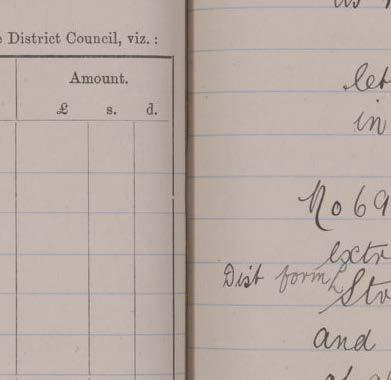 District Council, viz.:
Amount.
£ s. d.
let
in
No 69
extr
Dist form
and